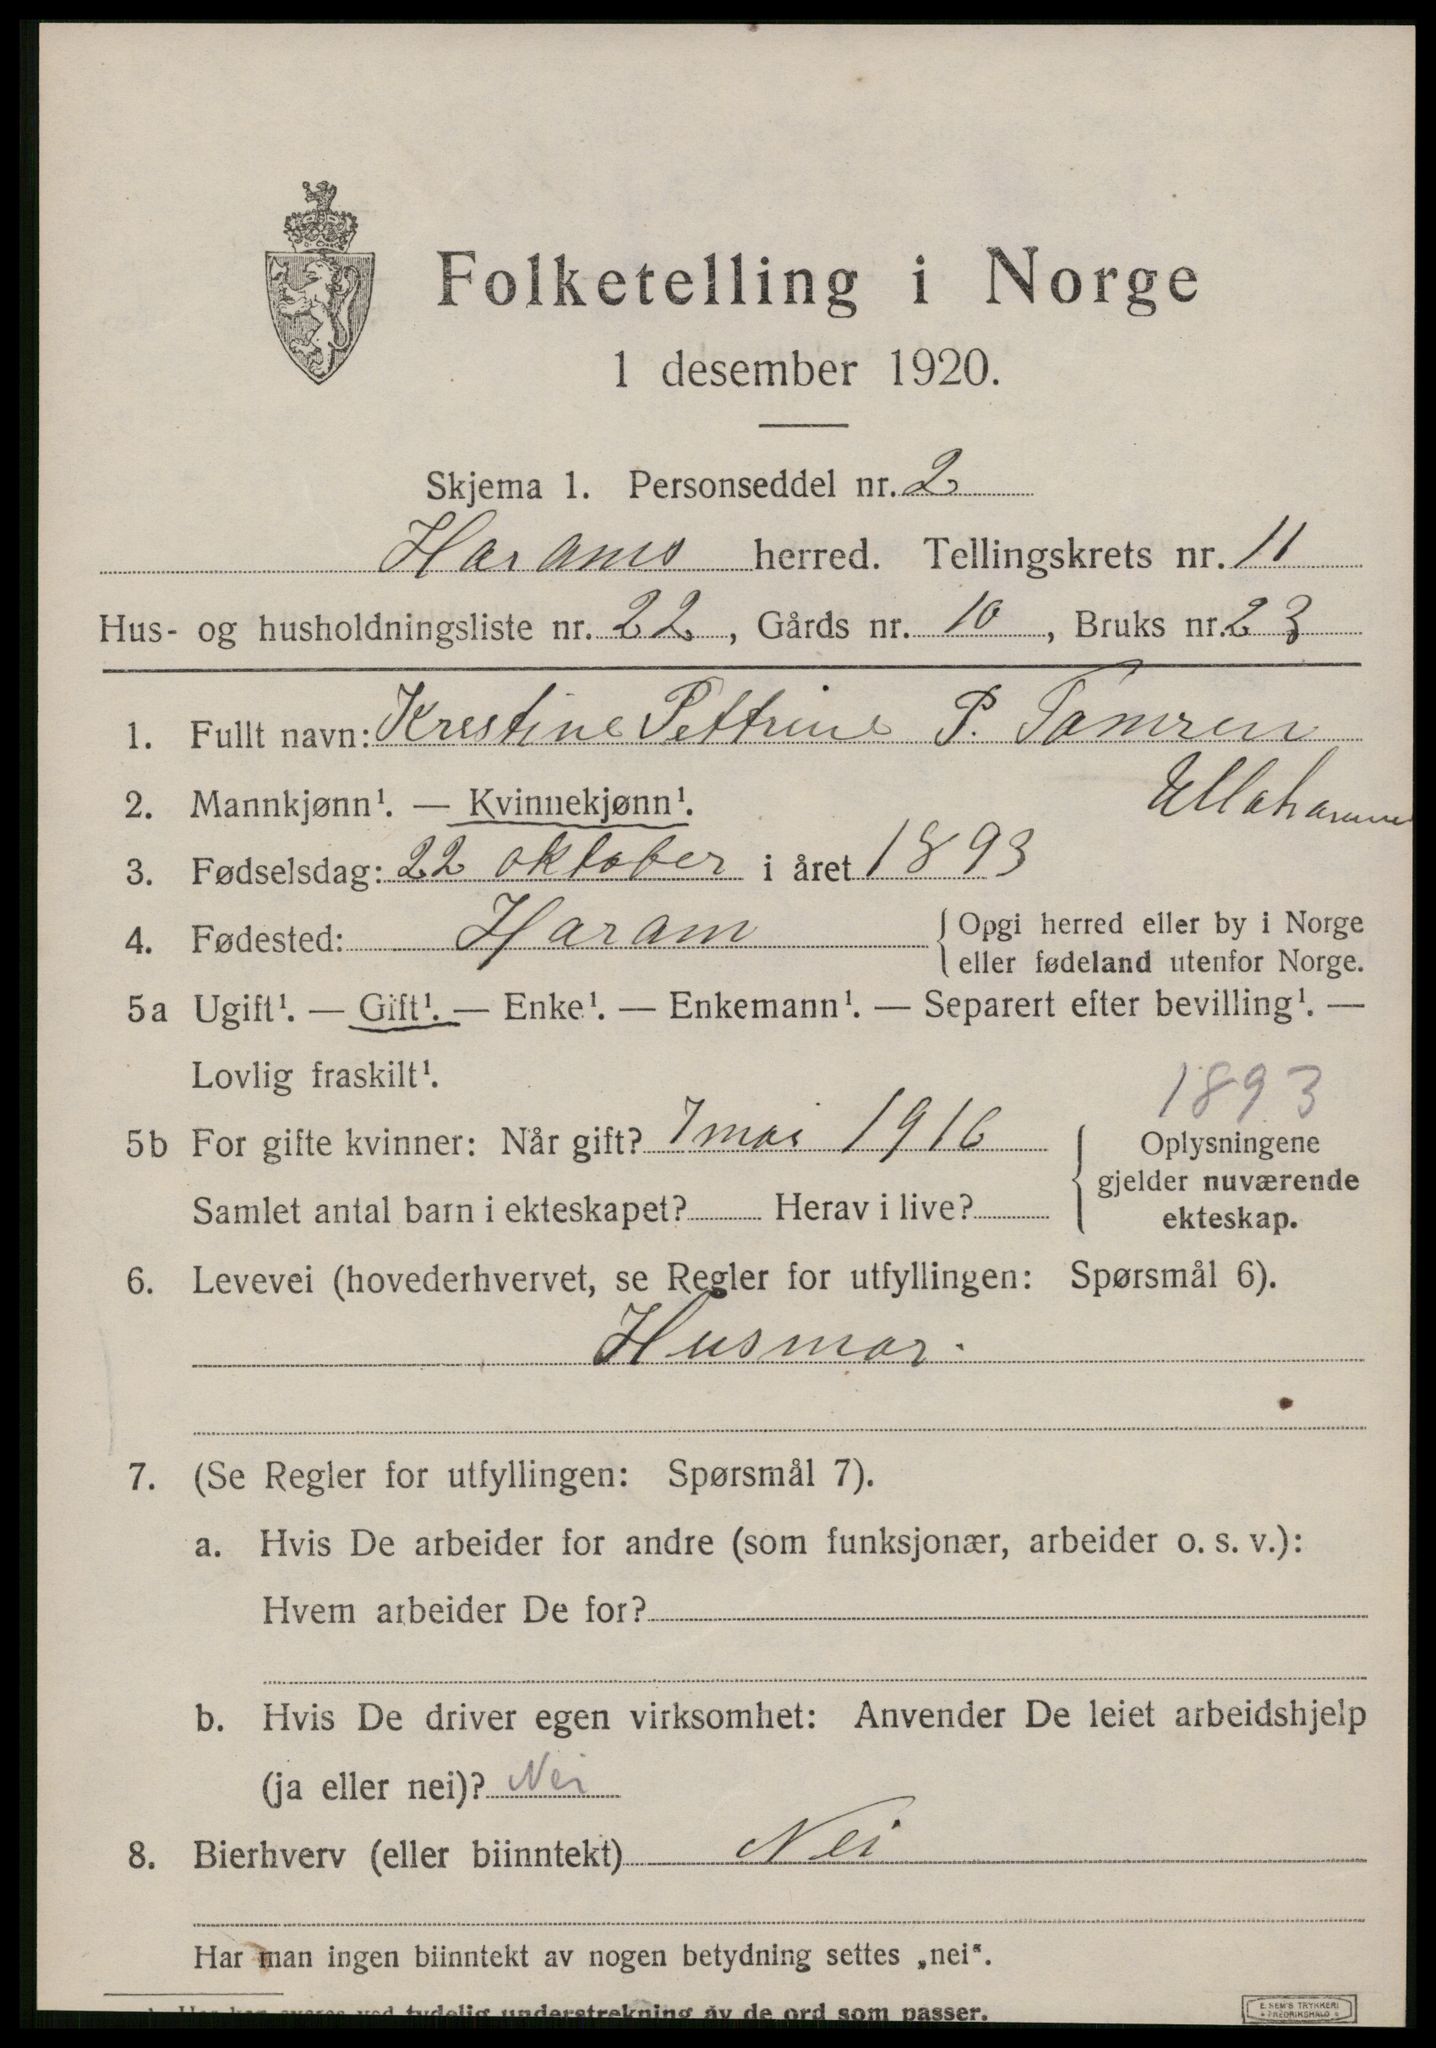 Folketelling i Norge
1 desember 1920.
Skjema 1. Personseddel nr. 2
Harams herred. Tellingskrets nr. 11
Hus- og husholdningsliste nr. 22, Gårds nr. 10, Bruks nr. 23
1. Fullt navn: Krestine Pettrine P. Tamren
2. Mannkjønn¹. — Kvinnekjønn¹. Ullahammer
3. Fødselsdag: 22 oktober i året 1893
4. Fødested: Haram { Opgi herred eller by i Norge
eller fødeland utenfor Norge.
5a Ugift¹. — Gift¹. — Enke¹. — Enkemann¹. — Separert efter bevilling¹. —
Lovlig fraskilt¹.
1893
5b For gifte kvinner: Når gift? 7 mai 1916 { Oplysningene
gjelder nuværende
ekteskap.
Samlet antal barn i ekteskapet? Herav i live?
6. Levevei (hovederhvervet, se Regler for utfyllingen: Spørsmål 6).
Husmor.
7. (Se Regler for utfyllingen: Spørsmål 7).
a. Hvis De arbeider for andre (som funksjonær, arbeider o. s. v.):
Hvem arbeider De for?
b. Hvis De driver egen virksomhet: Anvender De leiet arbeidshjelp
(ja eller nei)? Nei
8. Bierhverv (eller biinntekt) Nei
Har man ingen biinntekt av nogen betydning settes „nei“.
¹ Her kan svares ved tydelig understrekning av de ord som passer.
E. SEM'S TRYKKERI
FREDRIKSHALD